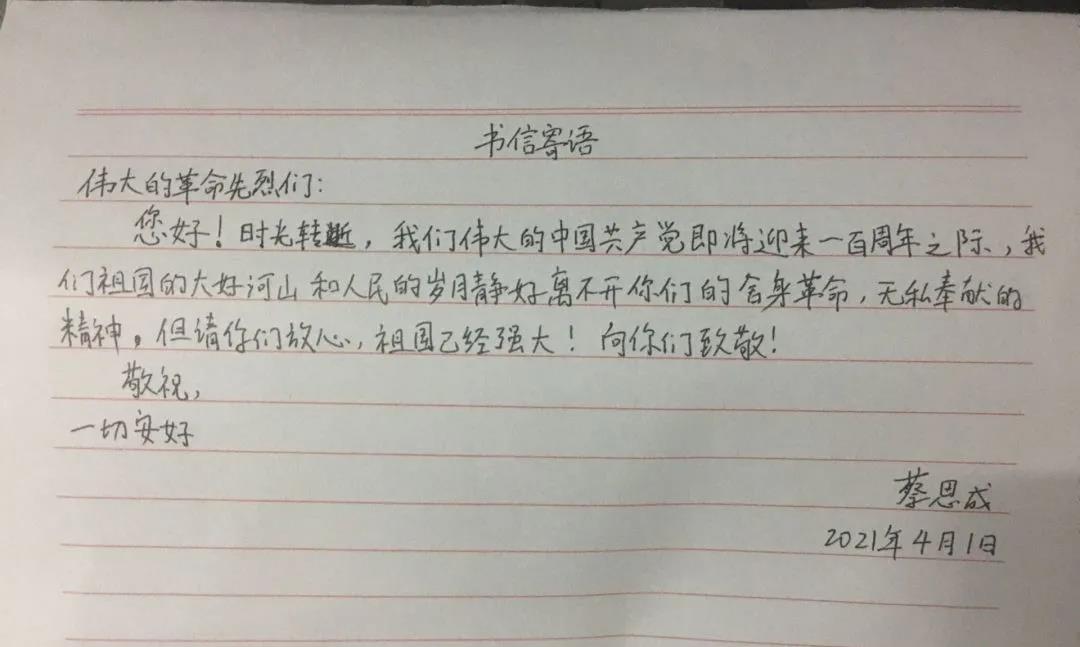 书信寄语
伟大的革命先烈们：
您好！时光转逝，我们伟大的中国共产党即将迎来一百周年之际，我
们祖国的大好河山和人民的岁月静好离不开你们的舍身革命，无私奉献的
精神。但请你们放心，祖国已经强大！向你们致敬！
敬祝，
一切安好
蔡思成
2021年4月1日